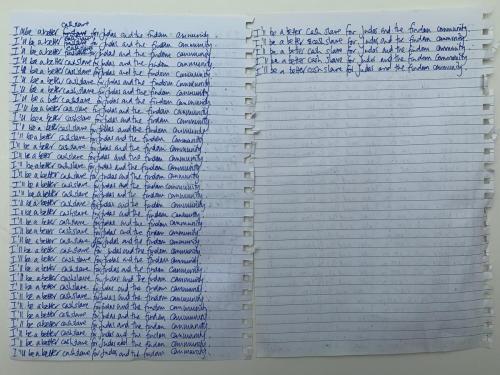 cashslave
I'll be a better for Judas and the findom community.
I'll be a better cashslave for Judas and the findom community.
I'll be a better cashslave for Judas and the findom community.
I'll be a better cashslave for Judas and the findom community.
I'll be a better cashslave for Judas and the findom community.
I'll be a better cashslave for Judas and the findom community.
I'll be a better cashslave for Judas and the findom community.
I'll be a better cashslave for Judas and the findom community.
I'll be a better cashslave for Judas and the findom community.
I'll be a better cashslave for Judas and the findom community.
I'll be a better cashslave for Judas and the findom community.
I'll be a better cashslave for Judas and the findom community.
I'll be a better cashslave for Judas and the findom community.
I'll be a better cashslave for Judas and the findom community.
I'll be a better cashslave for Judas and the findom community.
I'll be a better cashslave for Judas and the findom community.
I'll be a better cashslave for Judas and the findom community.
I'll be a better cashslave for Judas and the findom community.
I'll be a better cashslave for Judas and the findom community.
I'll be a better cashslave for Judas and the findom community.
I'll be a better cashslave for Judas and the findom community.
I'll be a better cashslave for Judas and the findom community.
I'll be a better cashslave for Judas and the findom community.
I'll be a better cashslave for Judas and the findom community.
I'll be a better cashslave for Judas and the findom community.
I'll be a better cashslave for Judas and the findom community.
I'll be a better cashslave for Judas and the findom community.
I'll be a better cashslave for Judas and the findom community.
I'll be a better cashslave for Judas and the findom community.
I'll be a better cashslave for Judas and the findom community.
I'll be a better cashslave for Judas and the findom community.
I'll be a better cashslave for Judas and the findom community.
I'll be a better cashslave for Judas and the findom community.
I'll be a better cashslave for Judas and the findom community.
I'll be a better cash slave for Judas and the findom community.
I'll be a better cash slave for Judas and the findom community.
I'll be a better cash slave for Judas and the findom community.
I'll be a better cash slave for Judas and the findom community.
I'll be a better cash slave for Judas and the findom community.